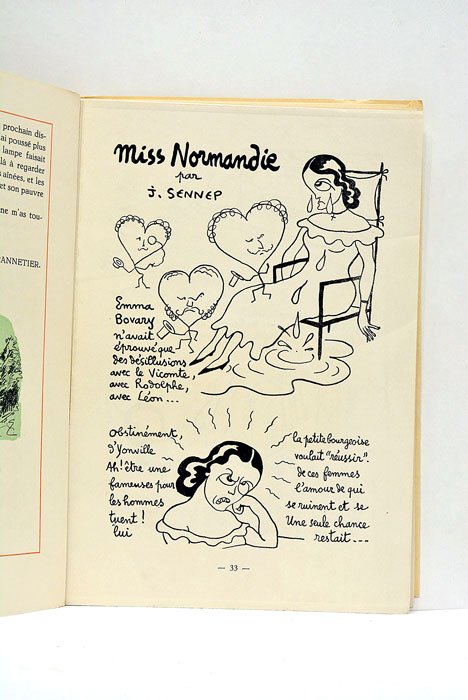 prochain dis-
ai poussé plus
lampe faisait
là à regarder
s aînées, et les
et son pauvre
ne m'as tou-
ANNETIER.
Miss Normandie
par
J. SENNEP
Emma
Bovary
n'avait
éprouvé que
des désillusions
avec le Vicomte,
avec Rodolphe,
avec Léon...
Obstinément, la petite bourgeoise
d'Yonville voulait "réussir".
Ah! être une de ces femmes
fameuses pour l'amour de qui
les hommes se ruinent et se
tuent! Une seule chance
lui restait...
— 33 —